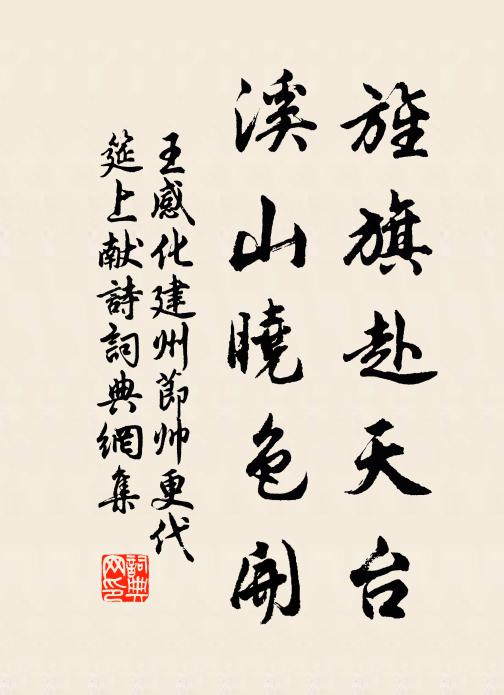 旌旗赴天台
溪山曉色開
王感化建州節帅更代
筵上献詩詞典網集
詞典
网印